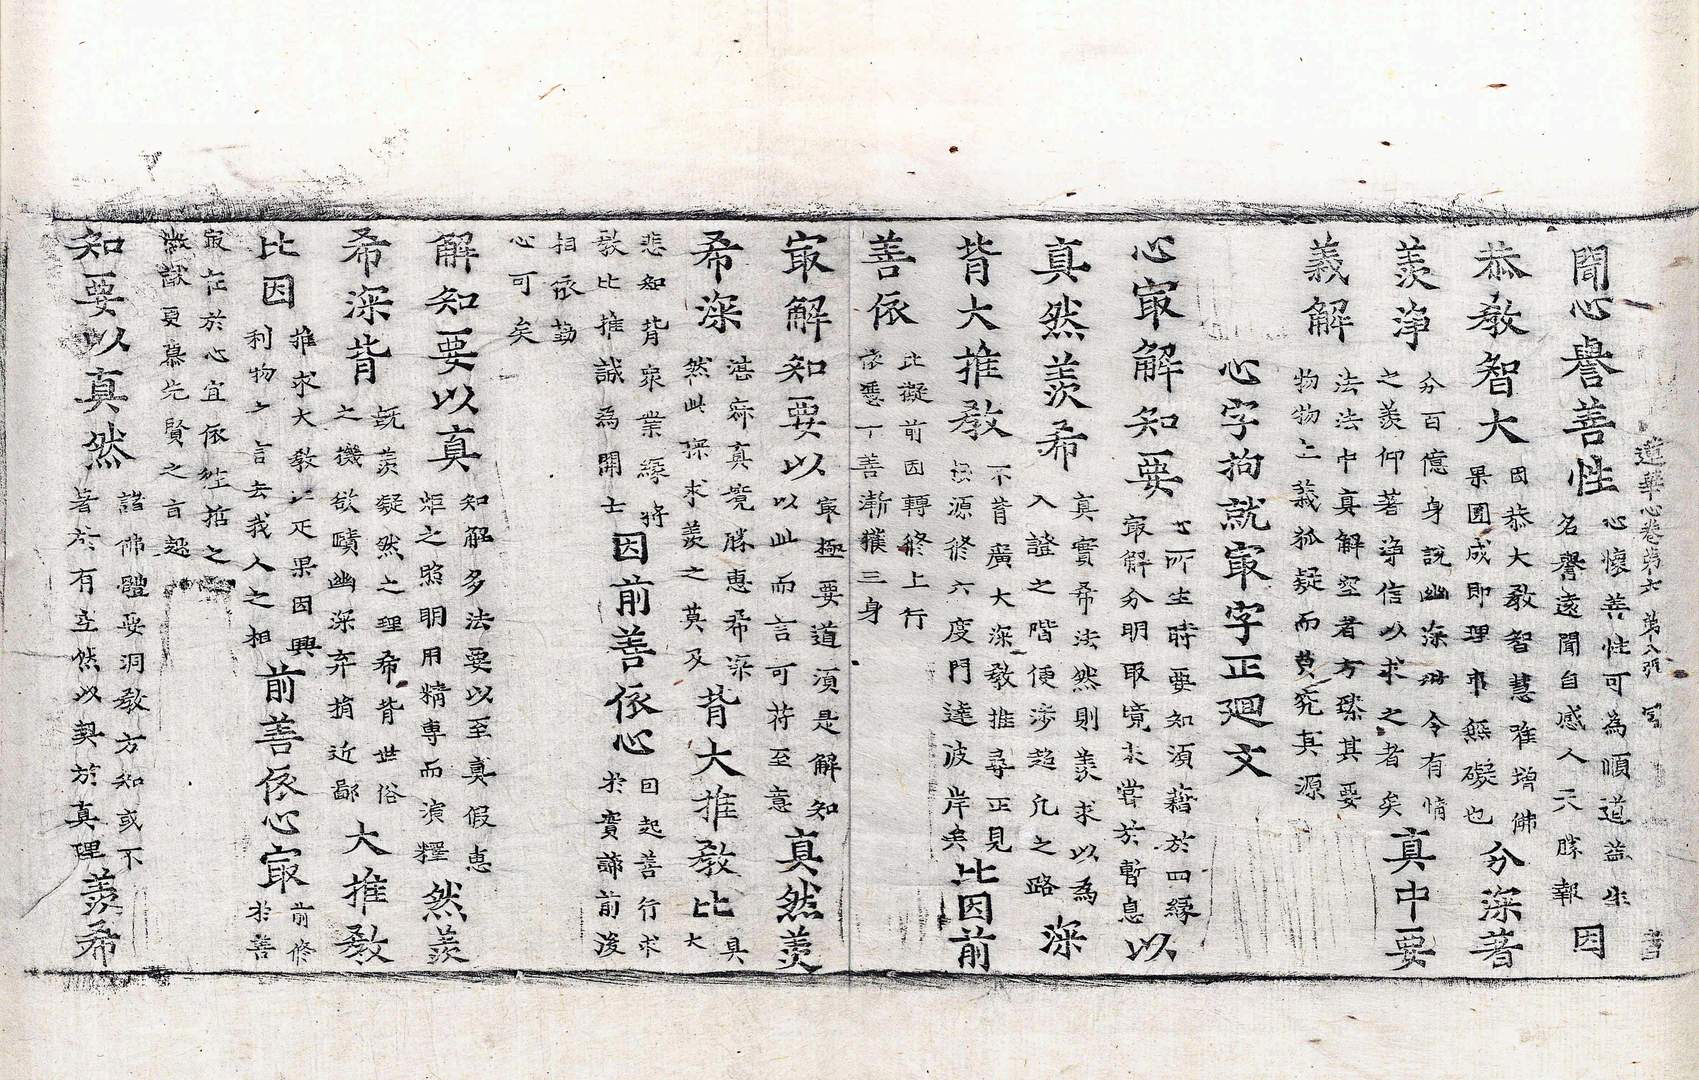 蓮華心卷第六 第八張
聞心譽善性 心懷善性可為順道益生
名譽遠聞自感人天勝報 因
恭教智大 因恭大教智慧唯增佛
果圓成即理事無礙也 分深著
羨淨 分百億身說幽深 令有情
之羨仰著淨信以求之者矣 真中要
義解 法法中真解空者方璨其要
物物上義狐疑而莫究其源
心字拘就㝡字正廻文
心㝡解知要 心所生時要知須藉於四緣
㝡解分明取境未嘗於暫息 以
真然羨希 真實希法然則羨求以為
入證之階便涉超凡之路 深
背大推教 不背廣大深教推尋正見
根源修六度門達彼岸矣 比因前
善依 比擬前因轉修上行
依憑丁善漸獲三身
㝡解知要以 㝡極要道須是解知
以此而言可符至意 真然羨
希深 湛寂真覺勝惠希深
然此深求羨之莫及 背大推教比 具
大
悲知背衆業緣將
教比推誠為開士 因前善依心 因起善行求
於實諦前後
相依勤
心可矣
解知要以真 知解多法要以至真假惠
炬之照明用精專而演釋 然羨
希深背 既羨疑然之理希背世俗
之機欲賾幽深弃捐近鄙 大推教
比因 推求大教比疋果因興
利物之言去我人之相 前善依心㝡 前修
於善
㝡在於心宜依經括之
微猷更慕先賢之言趣
知要以真然 諮佛體要洞教方知或不
著於有立然以契於真理 羨希